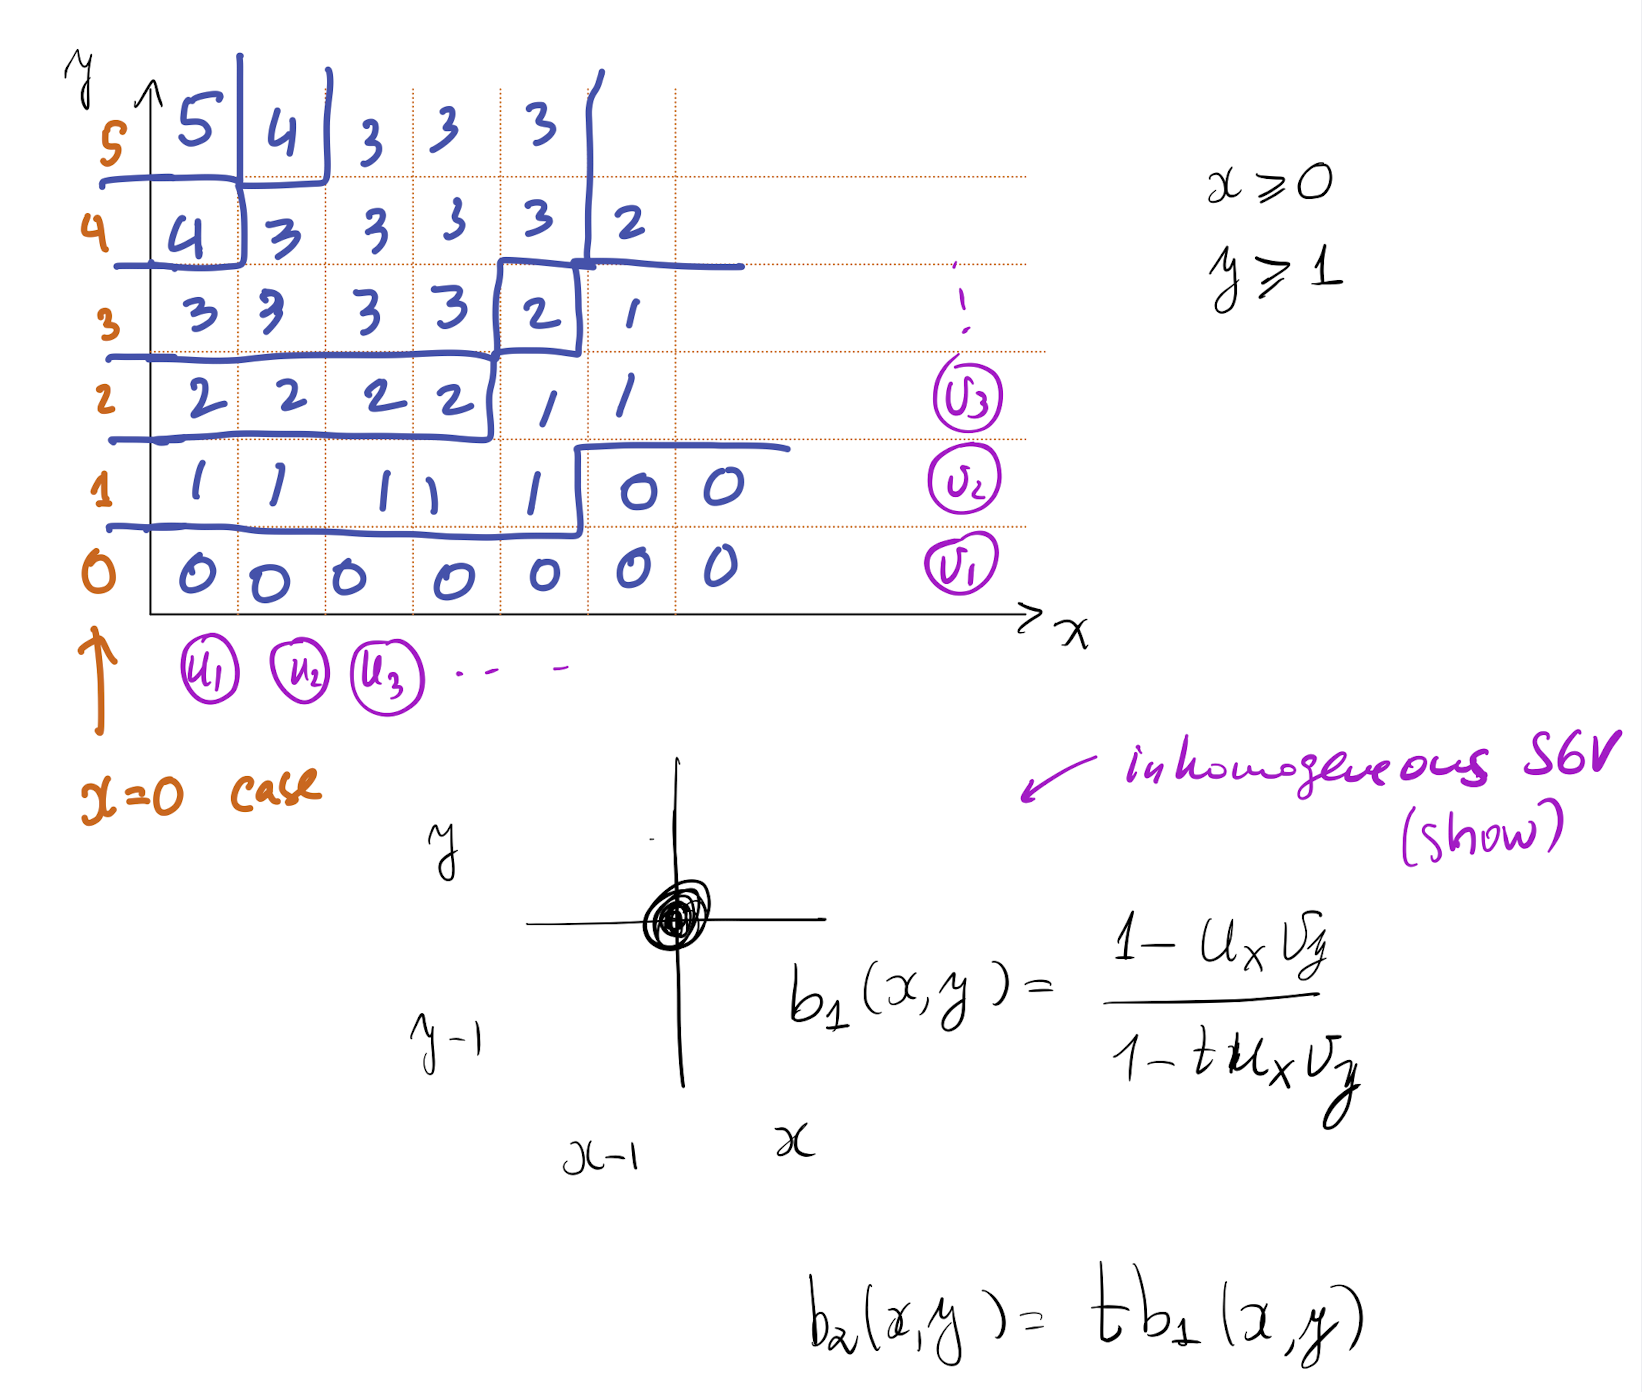 y
5 5 4 3 3 3
4 4 3 3 3 3 2
3 3 3 3 3 2 1
2 2 2 2 2 1 1
1 1 1 1 1 1 0 0
0 0 0 0 0 0 0 0
x
x ⩾ 0
y ⩾ 1
v3
v2
v1
u1 u2 u3 · - -
x=0 case
inhomogeneous S6V
(show)
y
y-1
x-1 x
b1(x,y) = (1 - uxvy) / (1 - tuxvy)
b2(x,y) = t b1(x,y)